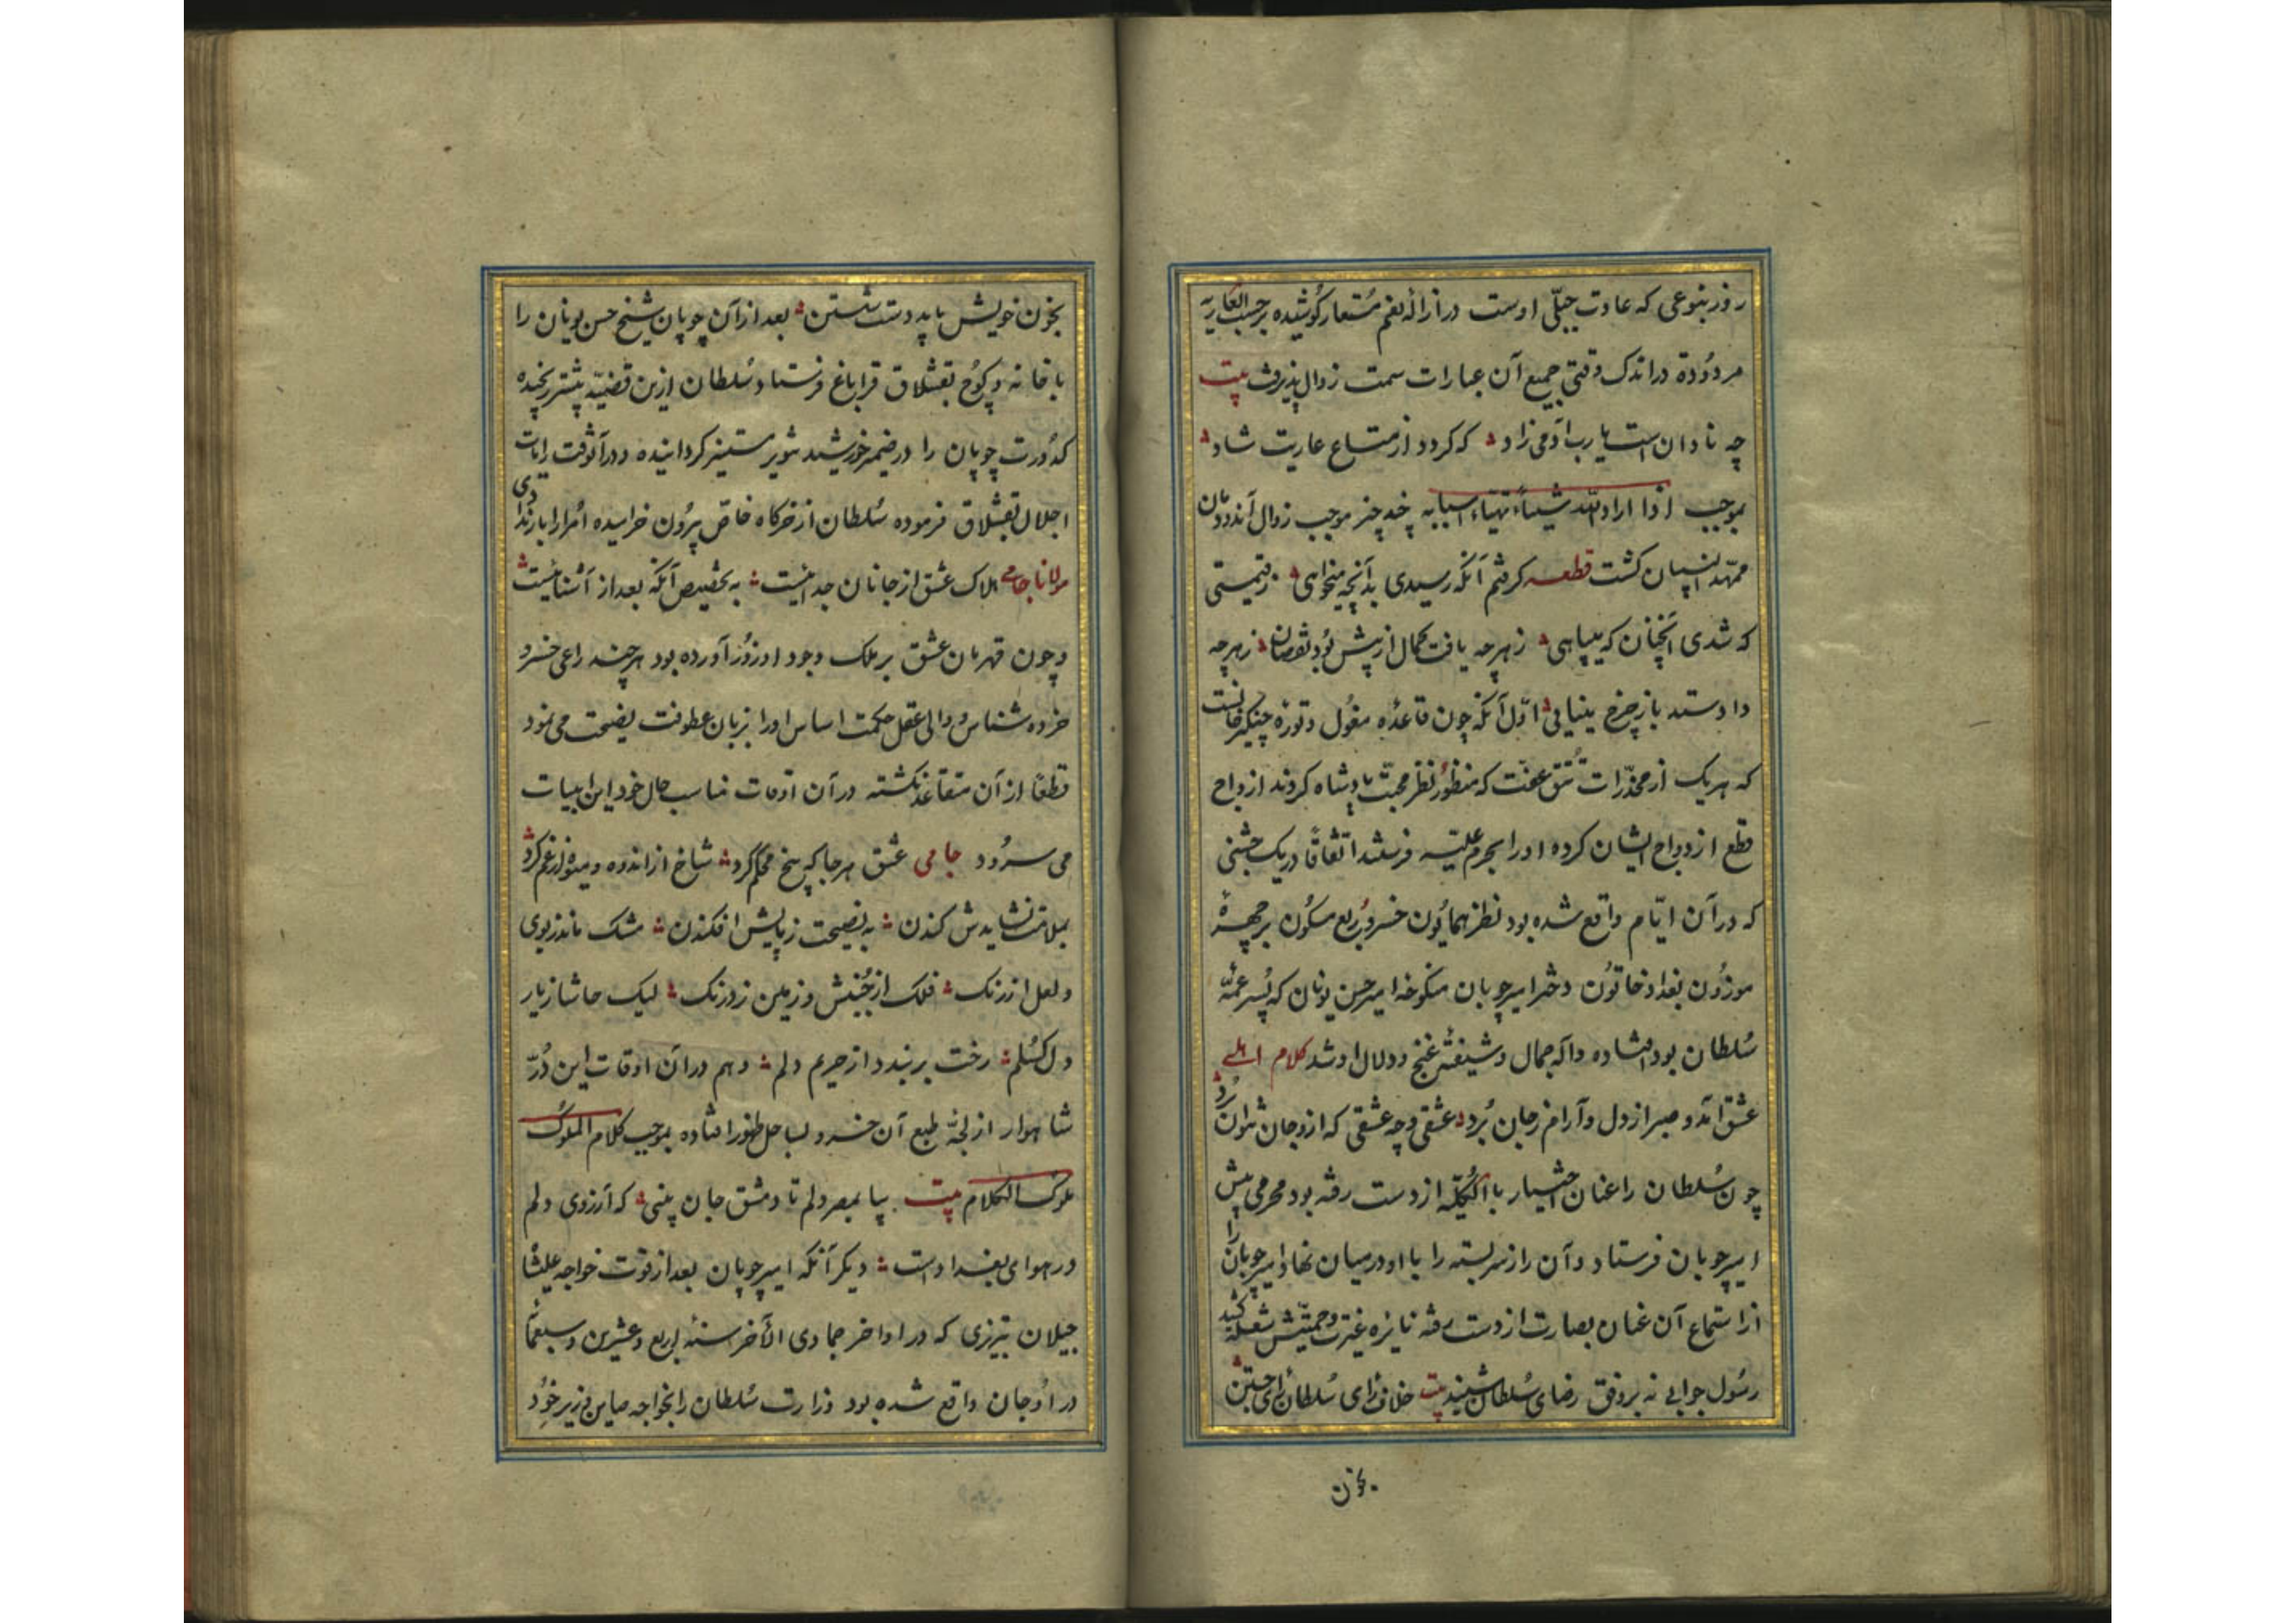 روز بنوعی که عادت جبلّی اوست در ازاله نعم مستعار کوشیده بر حسب العاریه
مردودة در اندک وقتی جمیع آن عبارات سمت زوال پذیرفت بیت
چه نادان است یا رب آدمی زاد که کردد از متاع عاریت شاد
بموجب اذا اراد الله شیئاً تهیّاء اسبابه چند چیز موجب زوال آن دودمان
ممهّد البنیان کشت قطعه کرفتم آنکه رسیدی بدآنچه میخواهی
که شدی آنچنان که میباهی زهرچه یافت کمال از پیش بود نقصان زهرچه
داد ستد باز چرخ مینایی اوّل آنکه چون قاعده مغول و توره چنیکز خانست
که هر یک از مخدّرات تتق عفّت که منظور نظر محبّت پادشاه کردند ازواج
قطع ازدواج ایشان کرده او را بحرم علیّه فرستند اتفاقاً در یک جشنی
که در آن ایّام واقع شده بود نظر همایون خسرو ربع مسکون بر چهرهٔ
موزون بغداد خاتون دختر امیر چوبان منکوحه امیر حسن یونان که پسر عمّهٔ
سلطان بود افتاده واله جمال و شیفته غنج و دلال او شد کلام اهلی
عشق آمد و صبر از دل و آرام ز جان برد عشقی و چه عشقی که ازو جان نتوان برد
چون سلطان را عنان اختیار بالکلیّه از دست رفته بود محرمی پیش
امیر چوبان فرستاد و آن راز سربسته را با او در میان نهاد امیر چوبان را
از استماع آن عنان بصارت از دست رفته نایره غیرت و حمیّتش شعله کشید
رسول جوابی نه بر وفق رضای سلطان شنید بیت خلاف رای سلطان رای جستن
بخون
بخون خویش باید دست شستن بعد از آن چوپان شیخ حسن یونان را
با خانه و کوچ بقشلاق قراباغ فرستاد و سلطان ازین قضیّه بیشتر رنجیده
کدورت چوپان را در ضمیر خورشید تنویر مستنیر کردانیده و در آنوقت رایات
اجلال بقشلاق فرموده سلطان از خرکاه خاصّ بیرون خرامیده امرا را بار ندادی
مولانا جامی هلاک عشق از جانان جدائیست به تخصیص آنکه بعد از آشنائیست
و چون قهرمان عشق بر ملک وجود او زور آورده بود هرچند راعی خسرو
خرده شناس و والی عقل حکمت اساس او را بزبان عطوفت نصیحت می نمود
قطعاً از آن متقاعد نکشته در آن اوقات مناسب حال خود این ابیات
می سرود جامی عشق هر جا که بیخ محکم کرد شاخ از اندوه و میوه از غم کرد
بملامت نشایدش کندن به نصیحت ز پایش افکندن مشک ماند ز بوی
و لعل از رنک فلک از جنبش و زمین ز درنک لیک حاشا ز یار
دل کسلم رخت بر بندد از حریم دلم و هم در آن اوقات این درّ
شاهوار از لجّه طبع آن خسرو بساحل ظهور افتاده بموجب کلام الملوک
ملوک الکلام بیت بیا بمصر دلم تا دمشق جان بینی که آرزوی دلم
در هوای بغداداست دیکر آنکه امیر چوپان بعد از فوت خواجه علیشاه
جیلان تبریزی که در اواخر جمادی الآخر سنه اربع و عشرین و سبعمائه
در اوجان واقع شده بود وزارت سلطان را بخواجه صاین وزیر خود